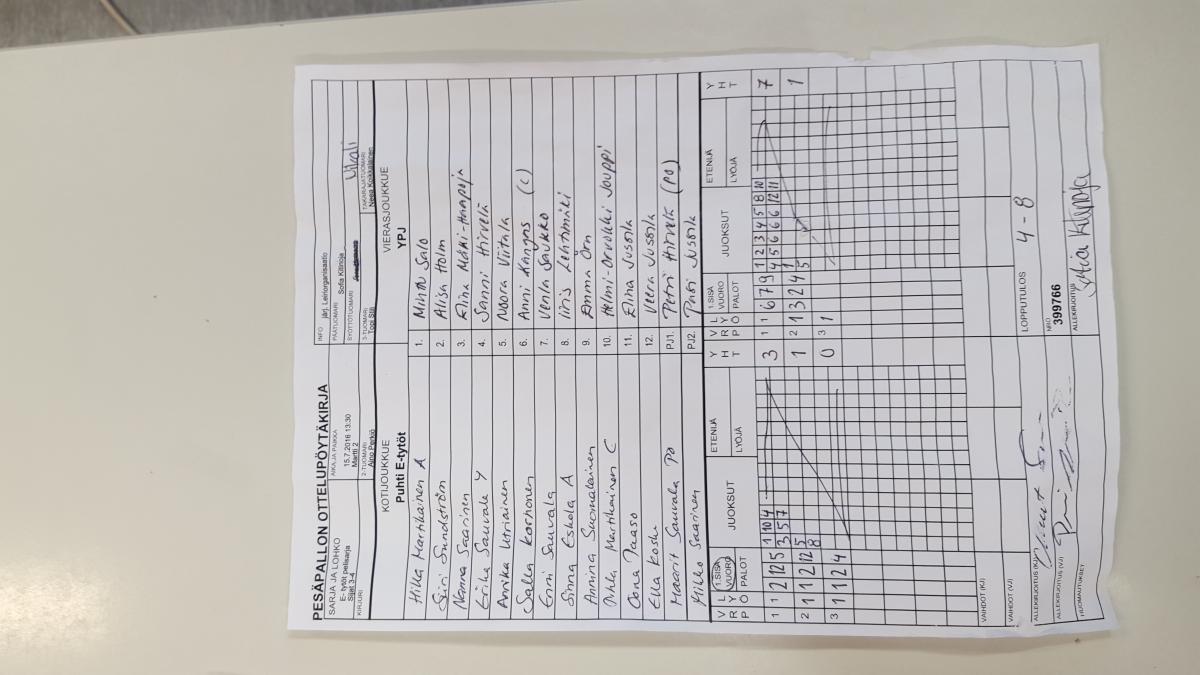 PESÄPALLON OTTELUPÖYTÄKIRJA
INFO järj. Leiriorganisaatio
SARJA JA LOHKO
E- tytöt pelisarja
Sijat 3-4
AIKA JA PAIKKA
15.7.2016 13:30
Martti 2
PÄÄTUOMARI
Sofia Kilinoja
SYÖTTÖTUOMARI
KIRJURI
2-TUOMARI
Aino Perkiö
3-TUOMARI
Topi Siili
TAKARAJATUOMARI
Neea Koikkalainen
KOTIJOUKKUE
Puhti E-tytöt
VIERASJOUKKUE
YPJ
Hilla Martikainen A 1. Minttu Salo
Siiri Sundström 2. Alisa Holm
Nanna Saarinen 3. Elina Mäki-Haapoja
Erika Sauvala Y 4. Sanni Hirvelä
Annika Utriainen 5. Noora Viitala
Salla Korhonen 6. Anni Kangas (C)
Enni Sauvala 7. Venla Saukko
Sinna Eskola A 8. Iiris Lehtimäki
Annina Suomalainen 9. Emma Örn
Martikainen C 10. Helmi-Orvokki Jouppi
Oona Paaso 11. Elina Jusorla
Ella Koski 12. Veera Jusorla
Maarit Sauvala PO PJ1. Petri Hirvelä (PO)
Mikko Saarinen PJ2. Pasi Jusorla
V R P L Y Ö 1.SISÄ VUORO PALOT JUOKSUT ETENIJÄ LYÖJÄ Y H T V R P L Y Ö 1.SISÄ VUORO PALOT JUOKSUT ETENIJÄ LYÖJÄ Y H T
1 1 2 12 5 1 10 4 3 1 1 6 7 9 1 2 3 4 5 8 10 7
3 5 7 4 5 6 6 6 12 11
2 1 1 2 12 5 1 2 1 3 2 4 1 1 1
8 5
3 1 1 2 4 0 3 1
VAIHDOT (KJ)
VAIHDOT (VJ)
LOPPUTULOS 4 - 8
ALLEKIRJOITUS (KJ)
NRO
399766
ALLEKIRJOITUS (VJ)
ALLEKIRJOITUS
Sofia Kilinoja
HUOMAUTUKSET